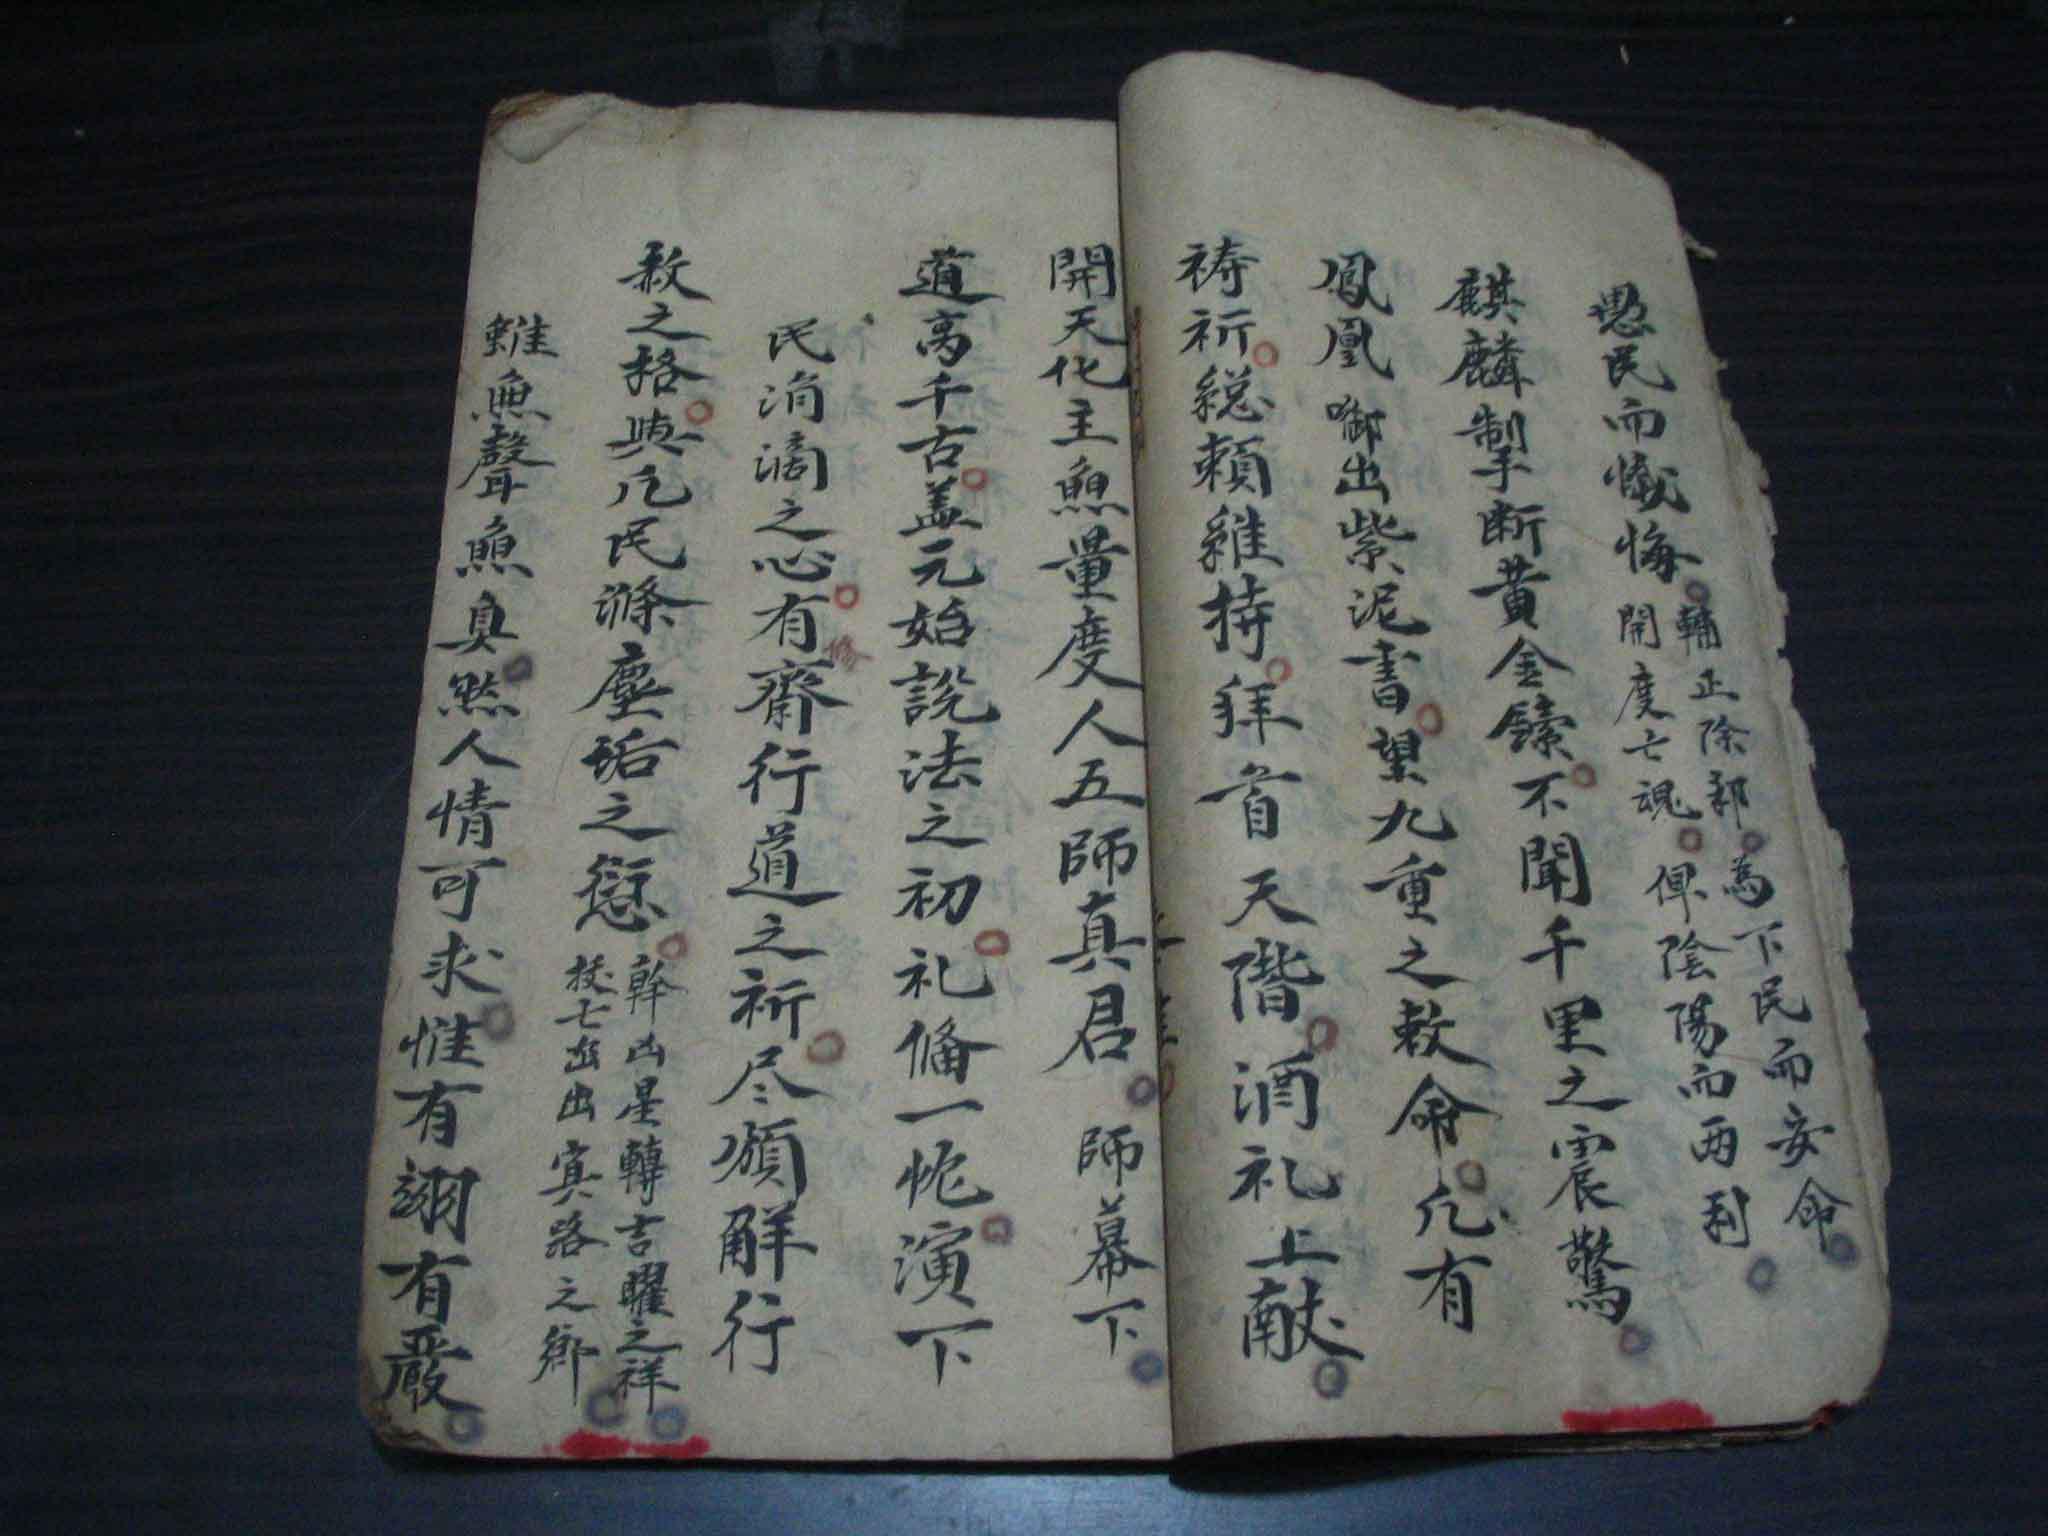 愚民而懺悔 輔正除邪為下民而安命
開度亡魂俾陰陽而两利
麒麟掣断黄金鎖不聞千里之震驚
鳳凰啣出紫泥書捧九重之敕命凢有
祷祈総頼維持拜首天階酒礼上献
開天化主無量度人五師真君 師幕下
道高千古盖元始説法之初礼俻一忱演下
民涓滴之心有齋行道之祈尽順解行
赦之格與凢民滌塵垢之愆 幹凶星轉吉曜之祥
拔亡出冥路之鄉
雖無聲無臭然人情可求惟有翊有嚴
修